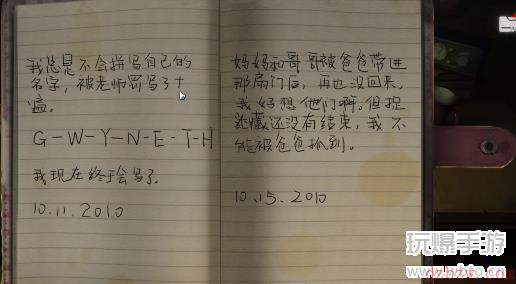 我总是不会拼写自己的
名字，被老师罚写了十
遍。
G-W-Y-N-E-T-H
我现在终于会写了。
10.11.2010
妈妈和哥哥被爸爸带进
那扇门后，再也没回来，
我好想他们啊。但捉
迷藏还没有结束，我不
能被爸爸抓到。
10.15.2010
玩爆手游